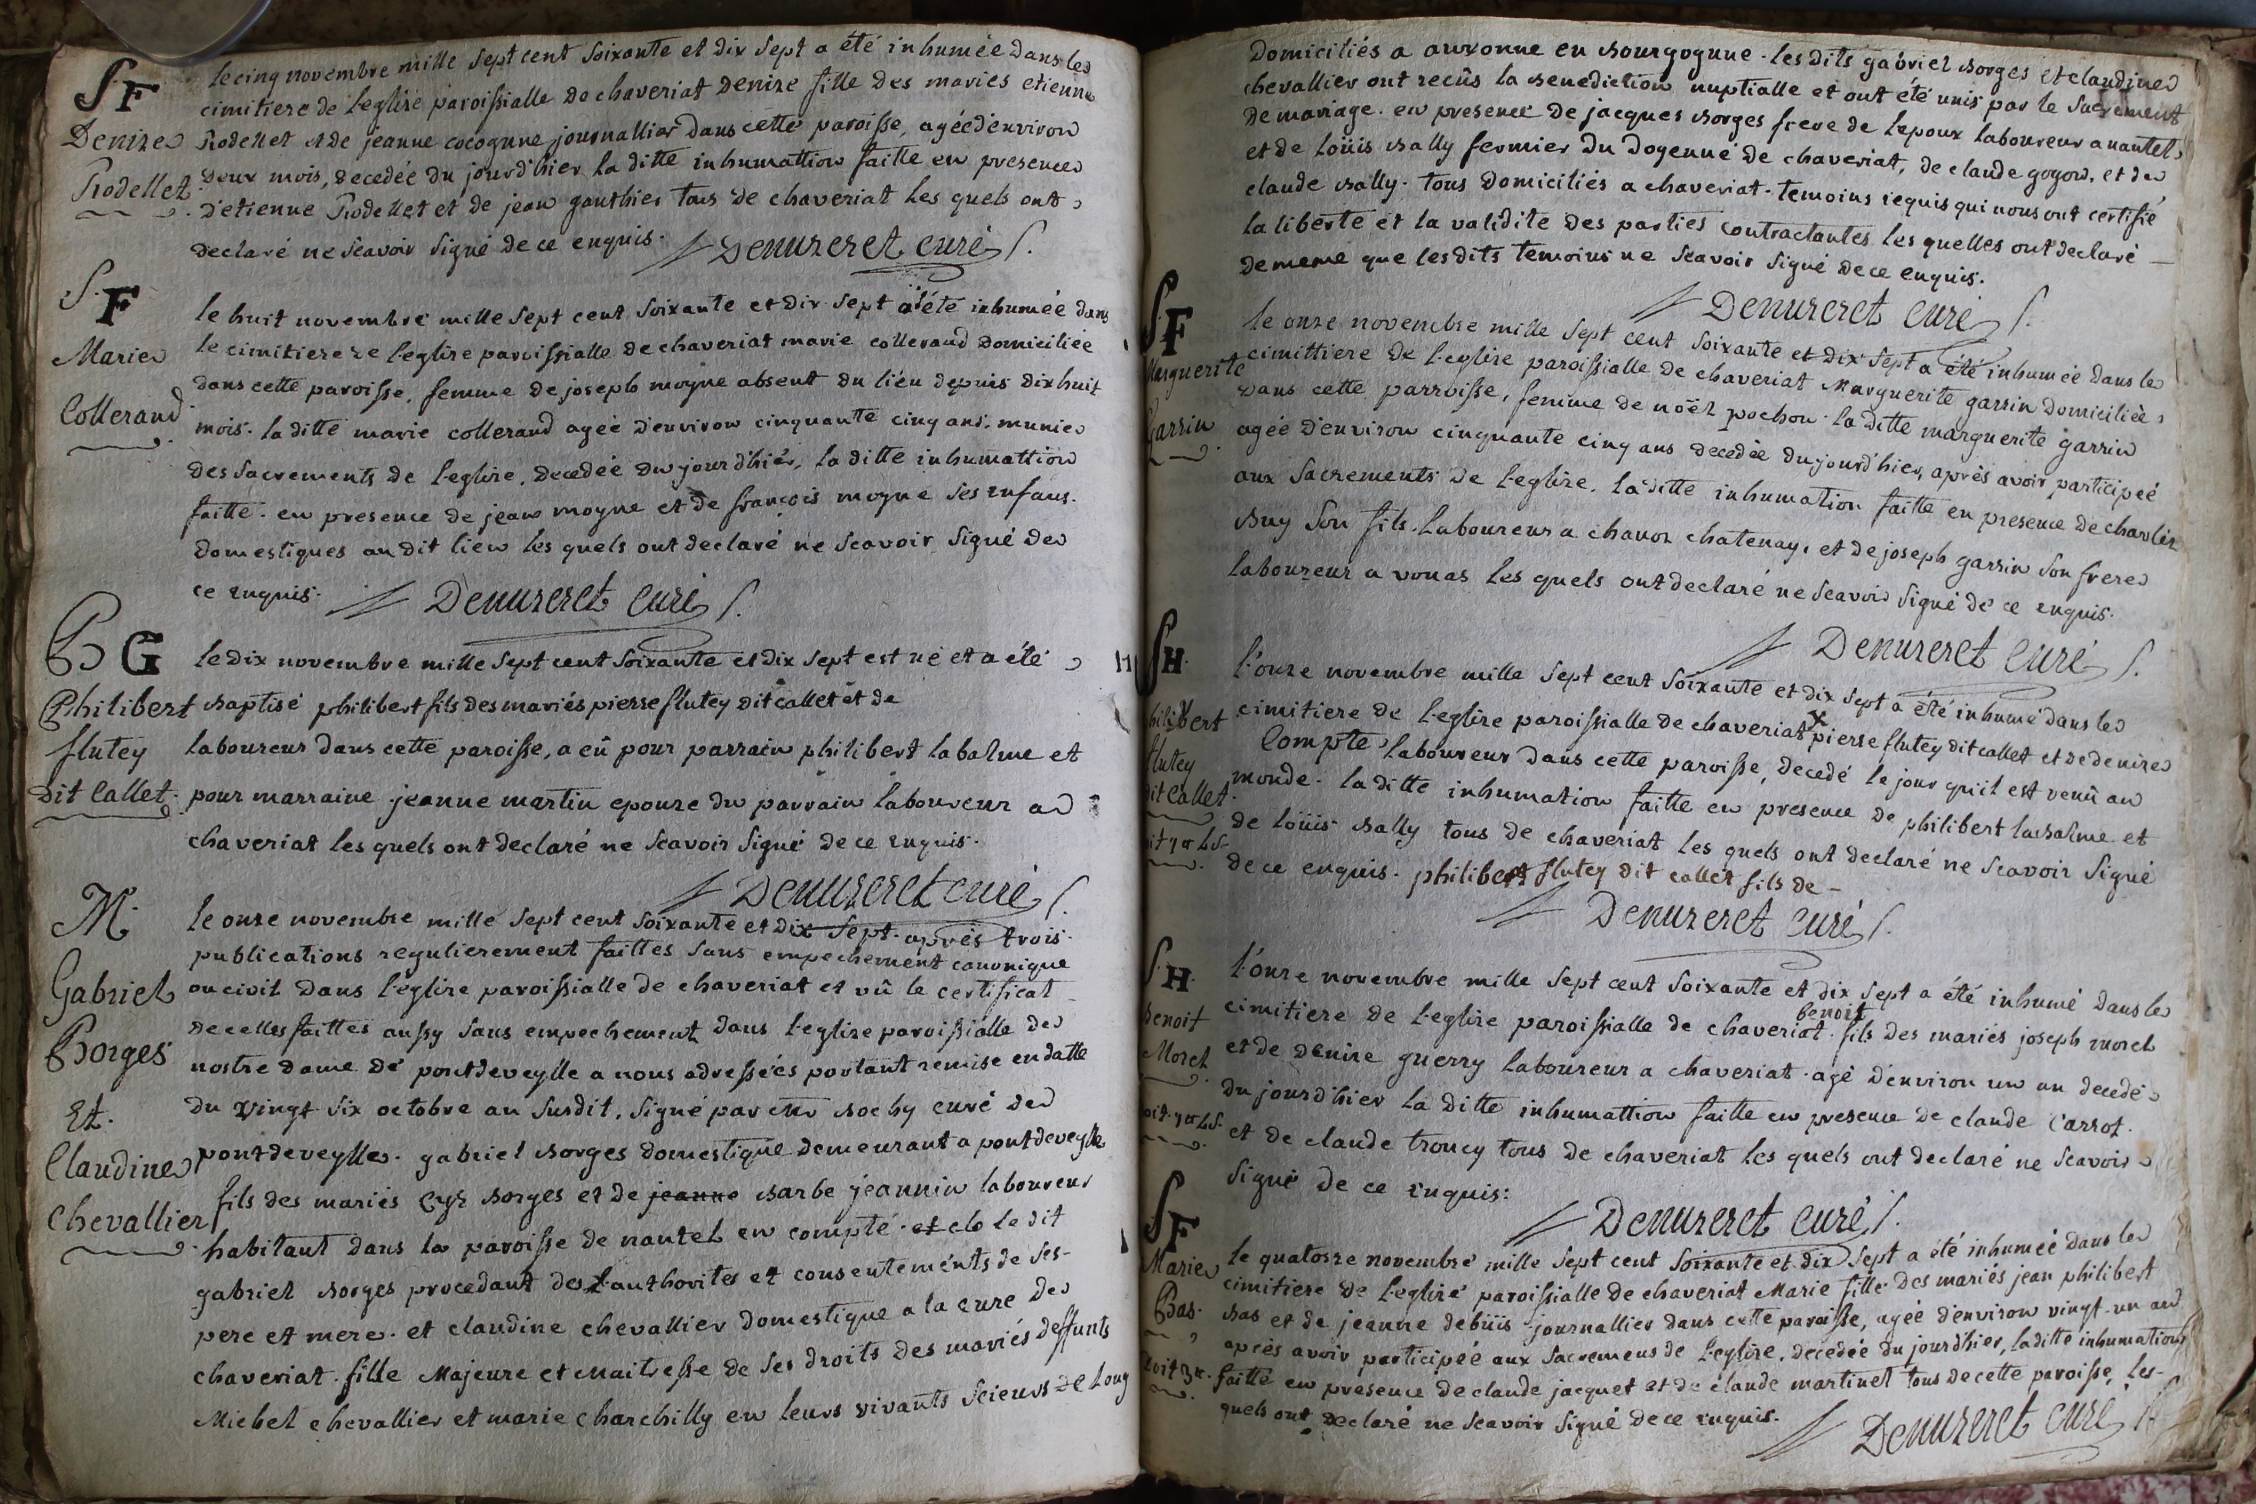 S. F
Denize
Rodellet
le cinq novembre mille sept cent soixante et dix sept a été inhumée dans le
cimitiere de l'eglize paroissialle de chaveriat Denize fille des mariés etienne
Rodellet et de jeanne cocogune journallier dans cette paroisse, agée d'environ
deux mois, decedée du jourd'hier la ditte inhumattion faitte en presence
d'etienne Rodellet et de jean gauthier tous de chaveriat les quels ont
declaré ne scavoir signé de ce enquis. Denuzeret curé
S. F
Marie
Collerand
le huit novembre mille sept cent soixante et dix sept a été inhumée dans
le cimitiere de l'eglize paroissialle de chaveriat marie collerand domiciliée
dans cette paroisse, femme de joseph moyne absent du lieu depuis dix huit
mois. la ditte marie collerand agée d'environ cinquante cinq ans. munie
des sacrements de l'eglize, decedée du jourd'hier, la ditte inhumattion
faitte. en presence de jean moyne et de françois moyne ses enfans.
domestiques au dit lieu les quels ont declaré ne scavoir signé de
ce enquis. Denuzeret curé
B G
Philibert
flutey
dit Callet.
le dix novembre mille sept cent soixante et dix sept est né et a été
baptisé philibert fils des mariés pierre flutey dit callet et de
laboureur dans cette paroisse, a eû pour parrain philibert labalme et
pour marraine jeanne martin epouze du parrain laboureur a
chaveriat les quels ont declaré ne scavoir signé de ce enquis.
Denuzeret curé
M.
Gabriel
Borges
Et.
Claudine
Chevallier
le onze novembre mille sept cent soixante et dix sept. après trois
publications regulierement faittes sans empechement canonique
ou civil dans l'eglize paroissialle de chaveriat et vû le certificat
de celles faittes aussy sans empechement dans l'eglize paroissialle de
nostre dame de pontdeveylle a nous adressées portant remise en datte
du vingt six octobre au susdit, signé par mr bochy curé de
pontdeveylle. gabriel borges domestique demeurant a pontdeveylle
fils des mariés borges et de jeanne barbe jeannin laboureur
habitant dans la paroisse de nantel en compté. et le dit
gabriel borges procedant de l'authorites et consentements de ses
pere et mere. et claudine chevallier domestique a la cure de
chaveriat. fille Majeure et Maitresse de ses droits des mariés deffunts
Michel chevallier et marie Charchilly en leurs vivants scieurs de long
domiciliés a auxonne en bourgogune. les dits gabriel borges et claudine
chevallier ont recûs la benediction nuptialle et ont été unis par le sacrement
de mariage. en presence de jacques borges frere de l'epoux laboureur a nantel,
et de loüis bally fermier du doyenné de chaveriat, de claude gogon, et de
claude bally. tous domiciliés a chaveriat. temoins requis qui nous ont certifié
la liberté et la validité des parties contractantes les quelles ont declaré
de meme que les dits temoins ne scavoir signé de ce enquis.
Denuzeret curé
S. F
Marguerite
Garrin
le onze novembre mille sept cent soixante et dix sept a été inhumée dans le
cimittiere de l'eglize paroissialle de chaveriat Marguerite garrin domiciliée
dans cette parroisse, femme de noël pochon. la ditte marguerite garrin
agée d'environ cinquante cinq ans decedée du jourd'hier, après avoir participeé
aux sacrements de l'eglize. la ditte inhumation faitte en presence de charles
buy son fils. laboureur a chanoz chatenay, et de joseph garrin son frere
laboureur a vonas les quels ont declaré ne scavoir signé de ce enquis.
Denuzeret curé
S H.
philibert
flutey
dit Callet.
l'onze novembre mille sept cent soixante et dix sept a été inhumé dans le
cimitiere de l'eglize paroissialle de chaveriat x pierre flutey dit callet et de denize
Compte laboureur dans cette paroisse, decedé le jour qu'il est venû au
monde. la ditte inhumation faitte en presence de philibert labalme et
de loüis bally tous de chaveriat les quels ont declaré ne scavoir signé
de ce enquis. philibert flutey dit callet fils de -
Denuzeret curé
S. H.
Benoit
Morel
l'onze novembre mille sept cent soixante et dix sept a été inhumé dans le
cimitiere de l'eglize paroissialle de chaveriat. benoit fils des mariés joseph morel
et de denize guerry laboureur a chaveriat. agé d'environ un an decedé
du jourd'hier la ditte inhumattion faitte en presence de claude Carrot.
et de claude troncy tous de chaveriat les quels ont declaré ne scavoir
signé de ce enquis: Denuzeret curé
S F
Marie
Bas.
le quatorze novembre mille sept cent soixante et dix sept a été inhumée dans le
cimitiere de l'eglize paroissialle de chaveriat Marie fille des mariés jean philibert
bas et de jeanne debüis journallier dans cette paroisse, agée d'environ vingt-un an
après avoir participée aux sacremens de l'eglize, decedée du jourd'hier, la ditte inhumation
faitte en presence de claude jacquet et de claude martinet tous de cette paroisse, les
quels ont declaré ne scavoir signé de ce enquis.
Denuzeret curé